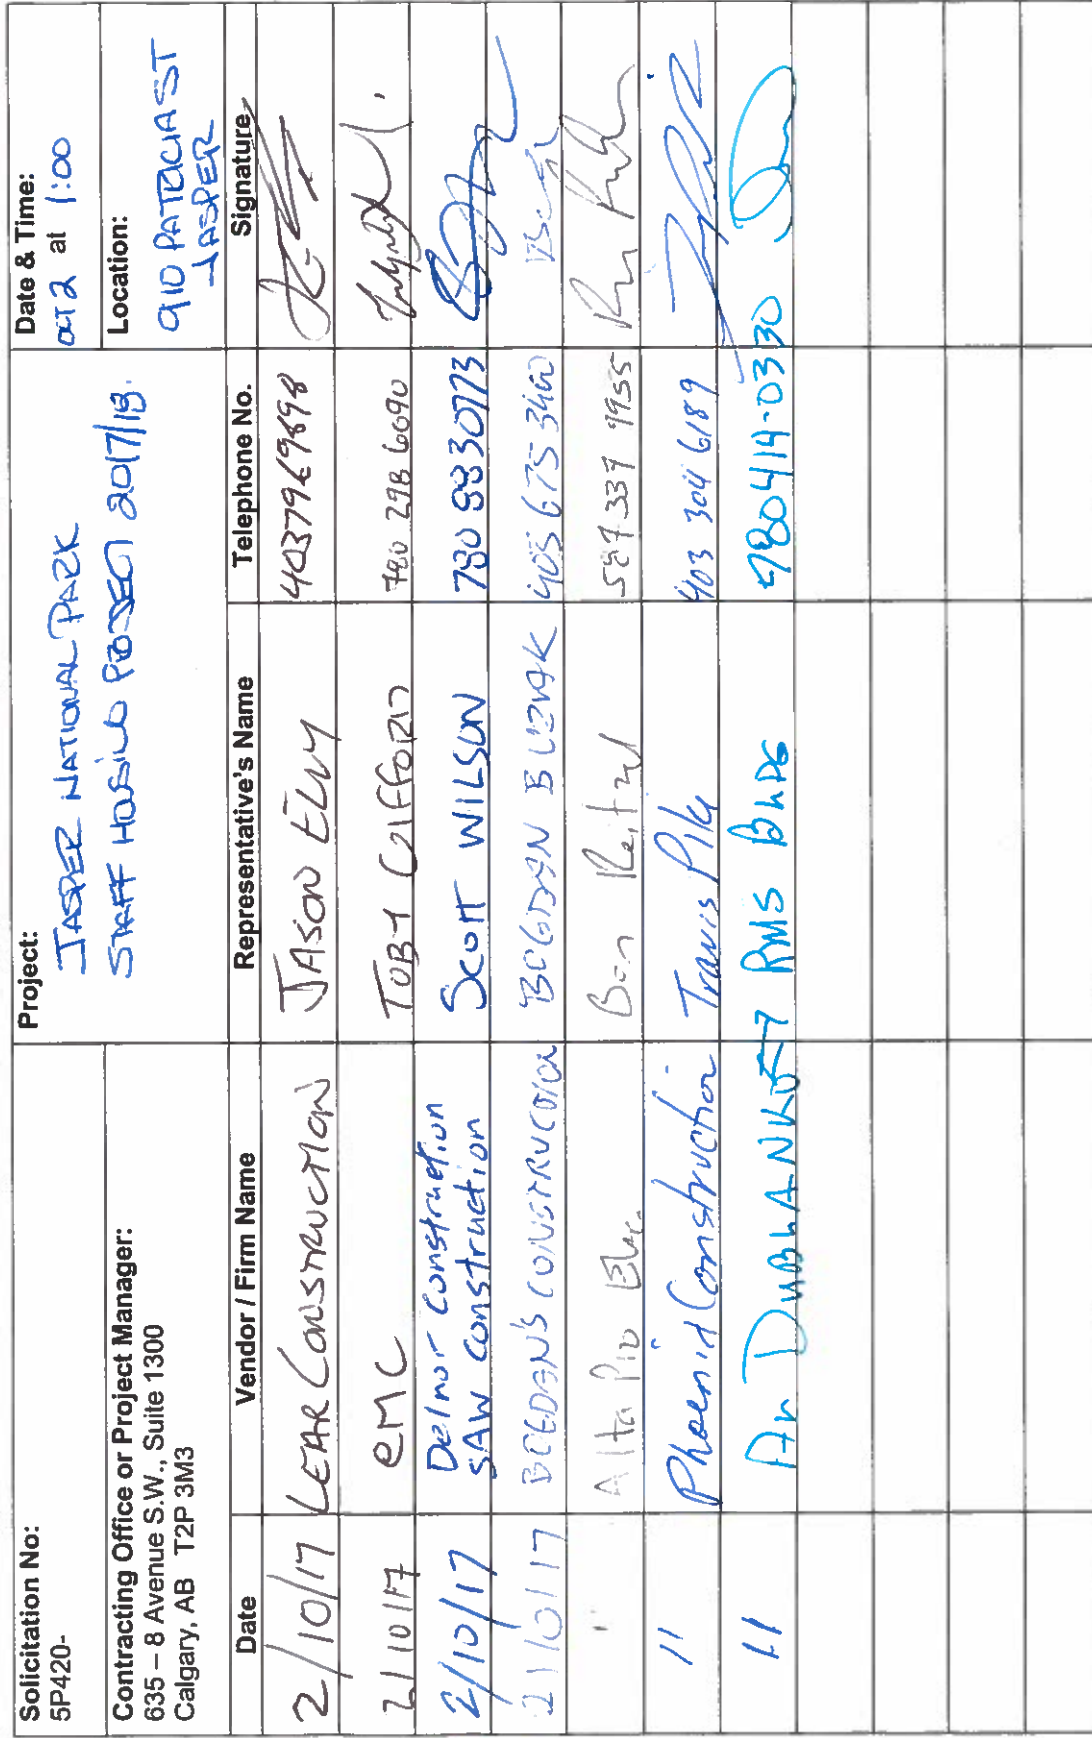 Solicitation No:
5P420-
Project:
JASPER NATIONAL PARK
STAFF HOUSING PROJECT 2017/18.
Date & Time:
OCT 2 at 1:00
Contracting Office or Project Manager:
635 – 8 Avenue S.W., Suite 1300
Calgary, AB T2P 3M3
Location:
910 PATRICIA ST
JASPER
Date Vendor / Firm Name Representative's Name Telephone No. Signature
2/10/17 LEAR CONSTRUCTION JASON ELVY
2/10/17 EMC TOBY GIFFORD 780 298 6090
2/10/17 Delnor Construction SCOTT WILSON 780 8830773
SAW Construction
2/10/17 CONSTRUCTION 405 675 3400
" Alta Pro Elec. Ben 587 337 1955
" Phoenix Construction Travis 403 304 6189
" RMS BLDG 780414-0330